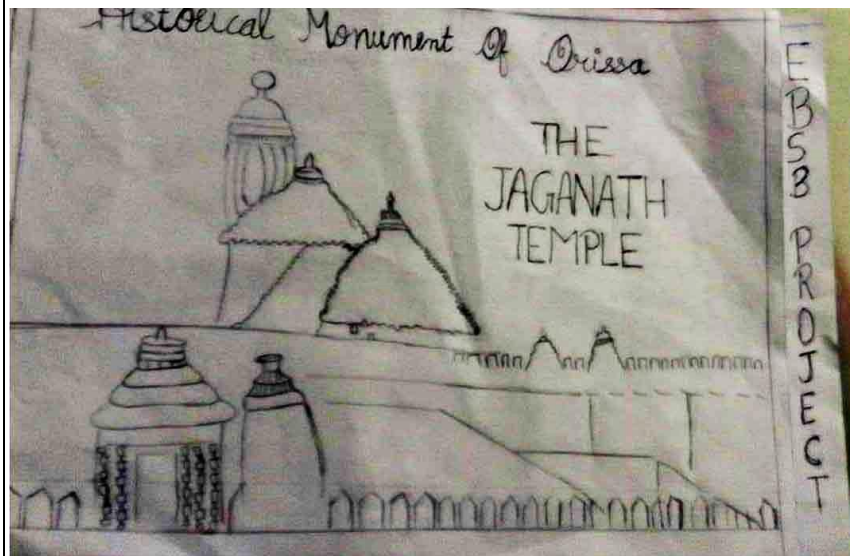 Historical Monument Of Orissa
THE
JAGANATH
TEMPLE
EBSB PROJECT